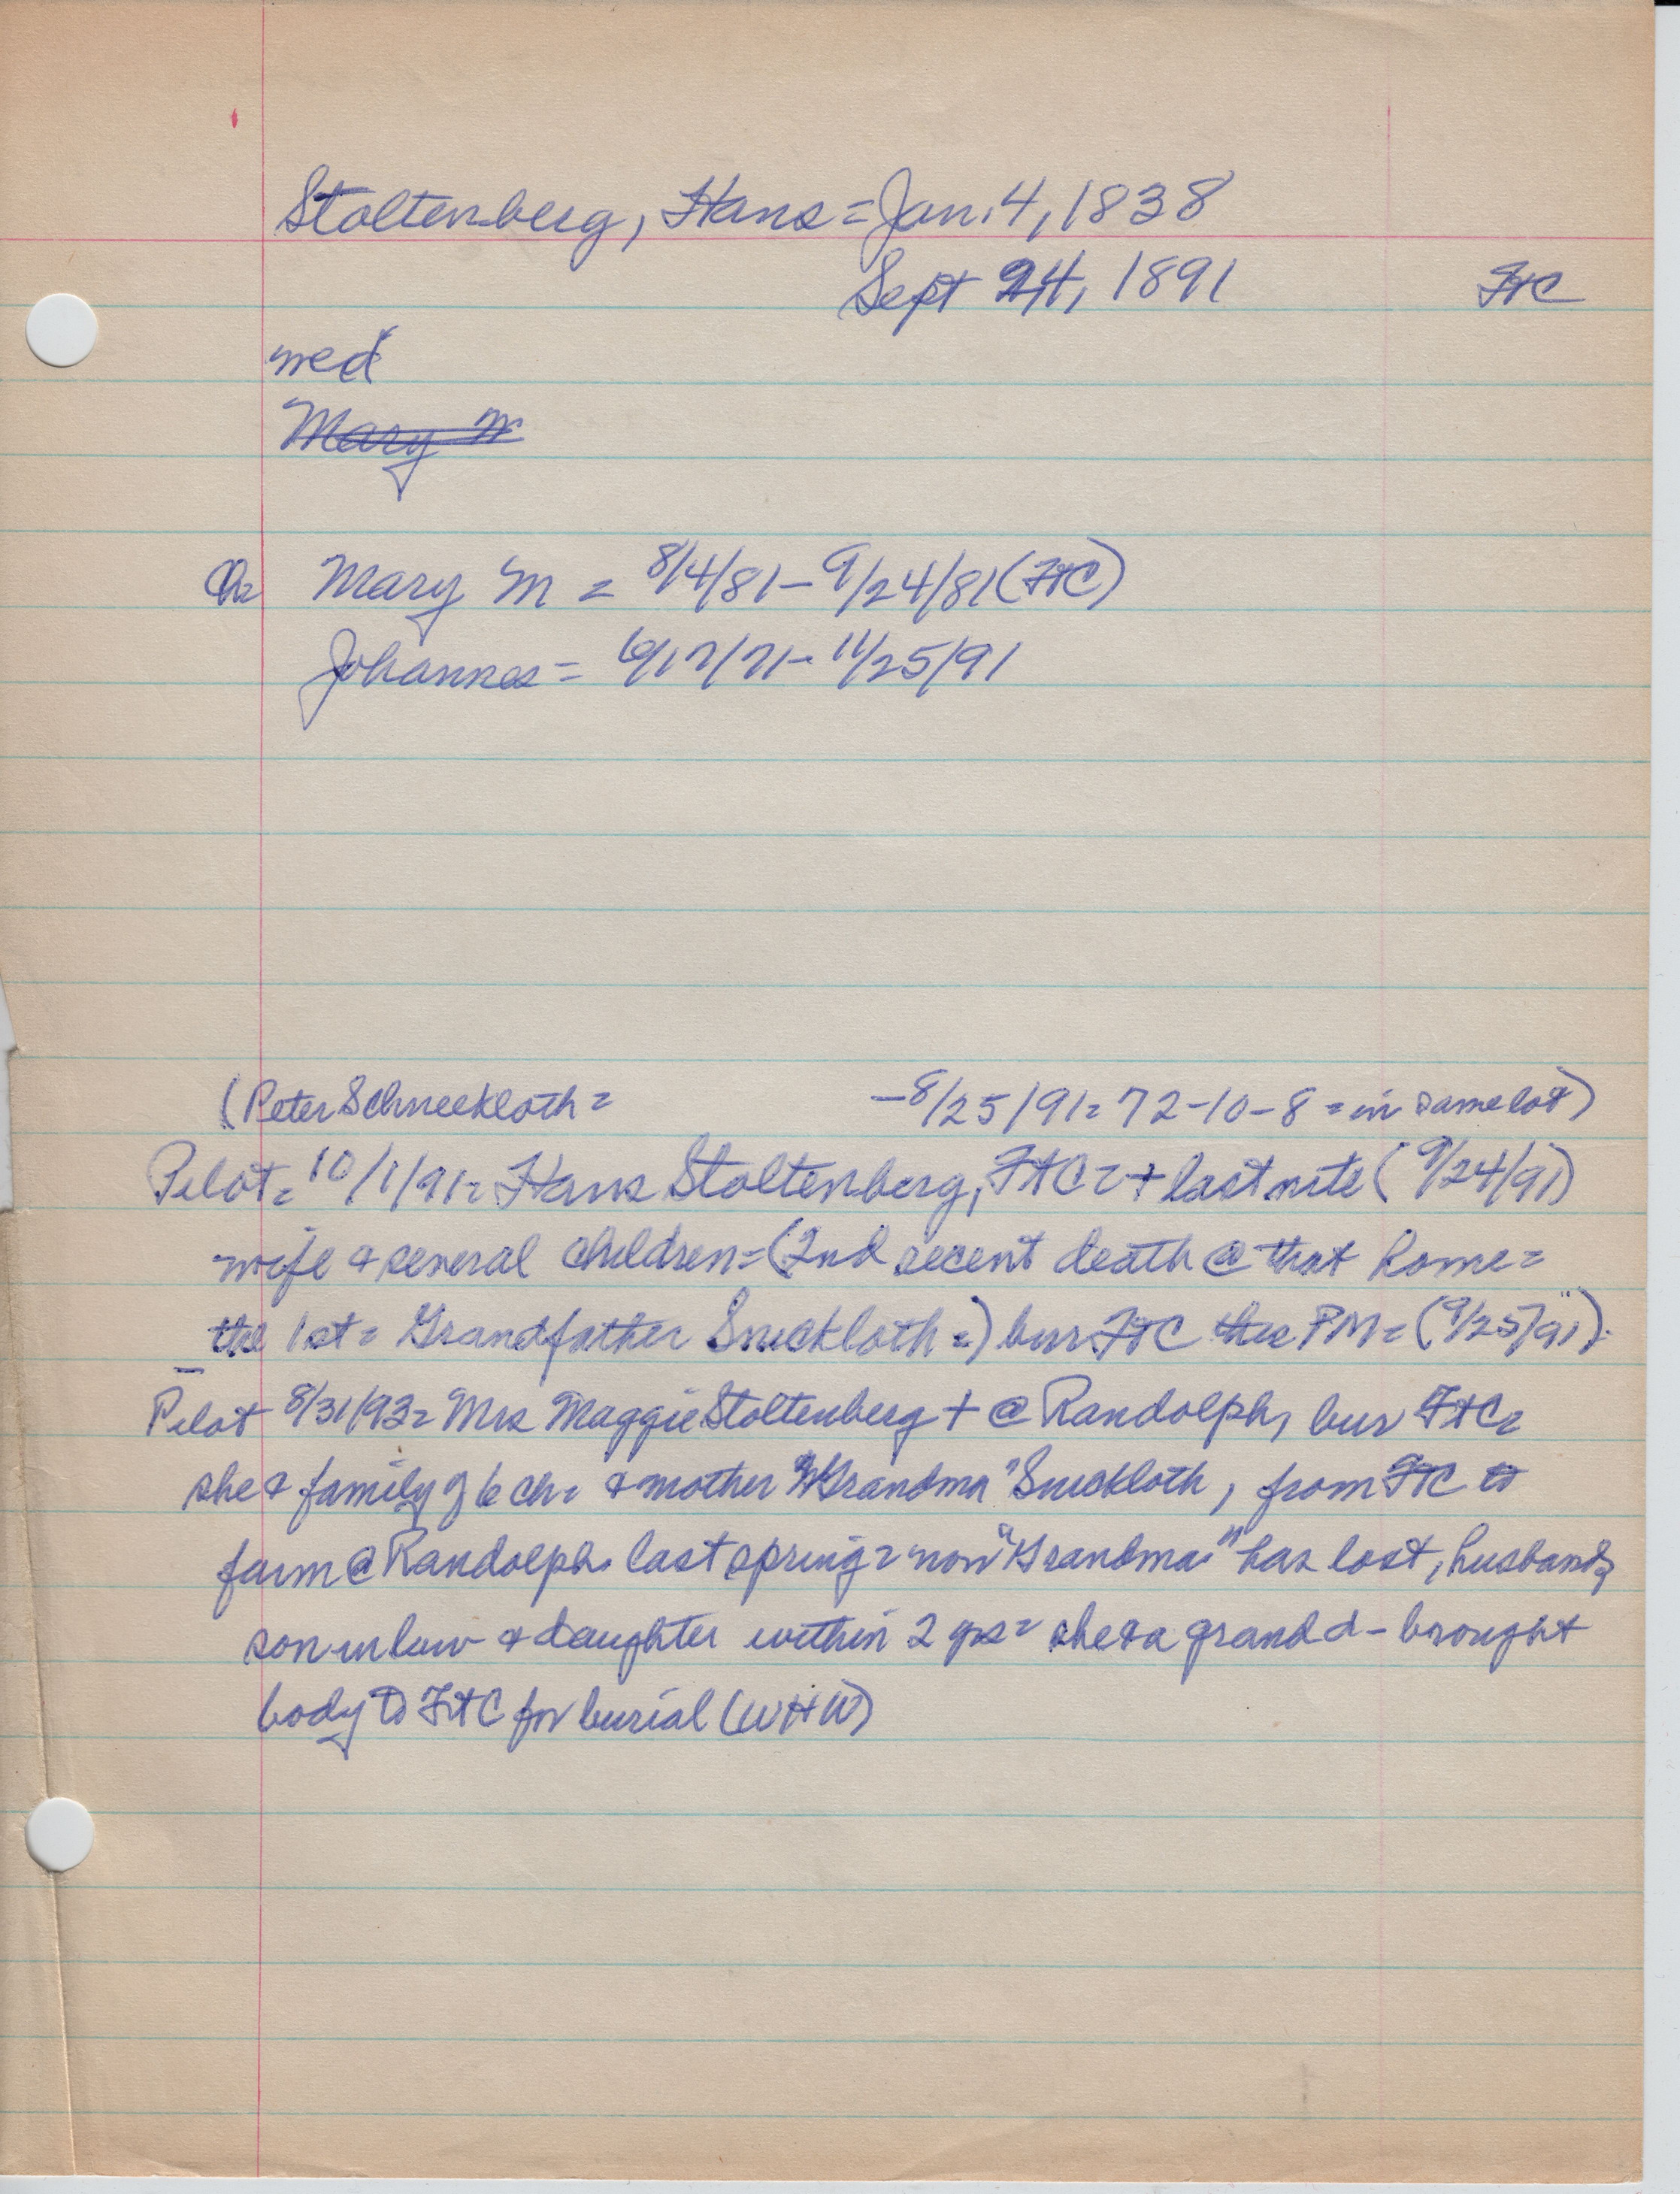 Stoltenberg, Hans = Jan. 4, 1838
Sept 24, 1891 FtC
wed
Mary M
Ch Mary M = 8/4/81 - 9/24/81 (FtC)
Johannes = 6/17/71 - 11/25/91
(Peter Schneekloth = - 8/25/91 = 72-10-8 = in same lot)
Pilot = 10/1/91 = Hans Stoltenberg, FtC = + last nite (9/24/91)
wife & several children = (2nd recent death @ that home =
the 1st = Grandfather Sneckloth =) bur FtC this PM = (9/25/91).
Pilot 8/31/93 = Mrs Maggie Stoltenberg + @ Randolph, bur FtC =
she & family of 6 ch = & mother "Grandma" Sneckloth, from FtC to
farm @ Randolph last spring = now "Grandma" has lost, husband,
son in law & daughter within 2 yrs = she & a grand d - brought
body to FtC for burial (WHW)